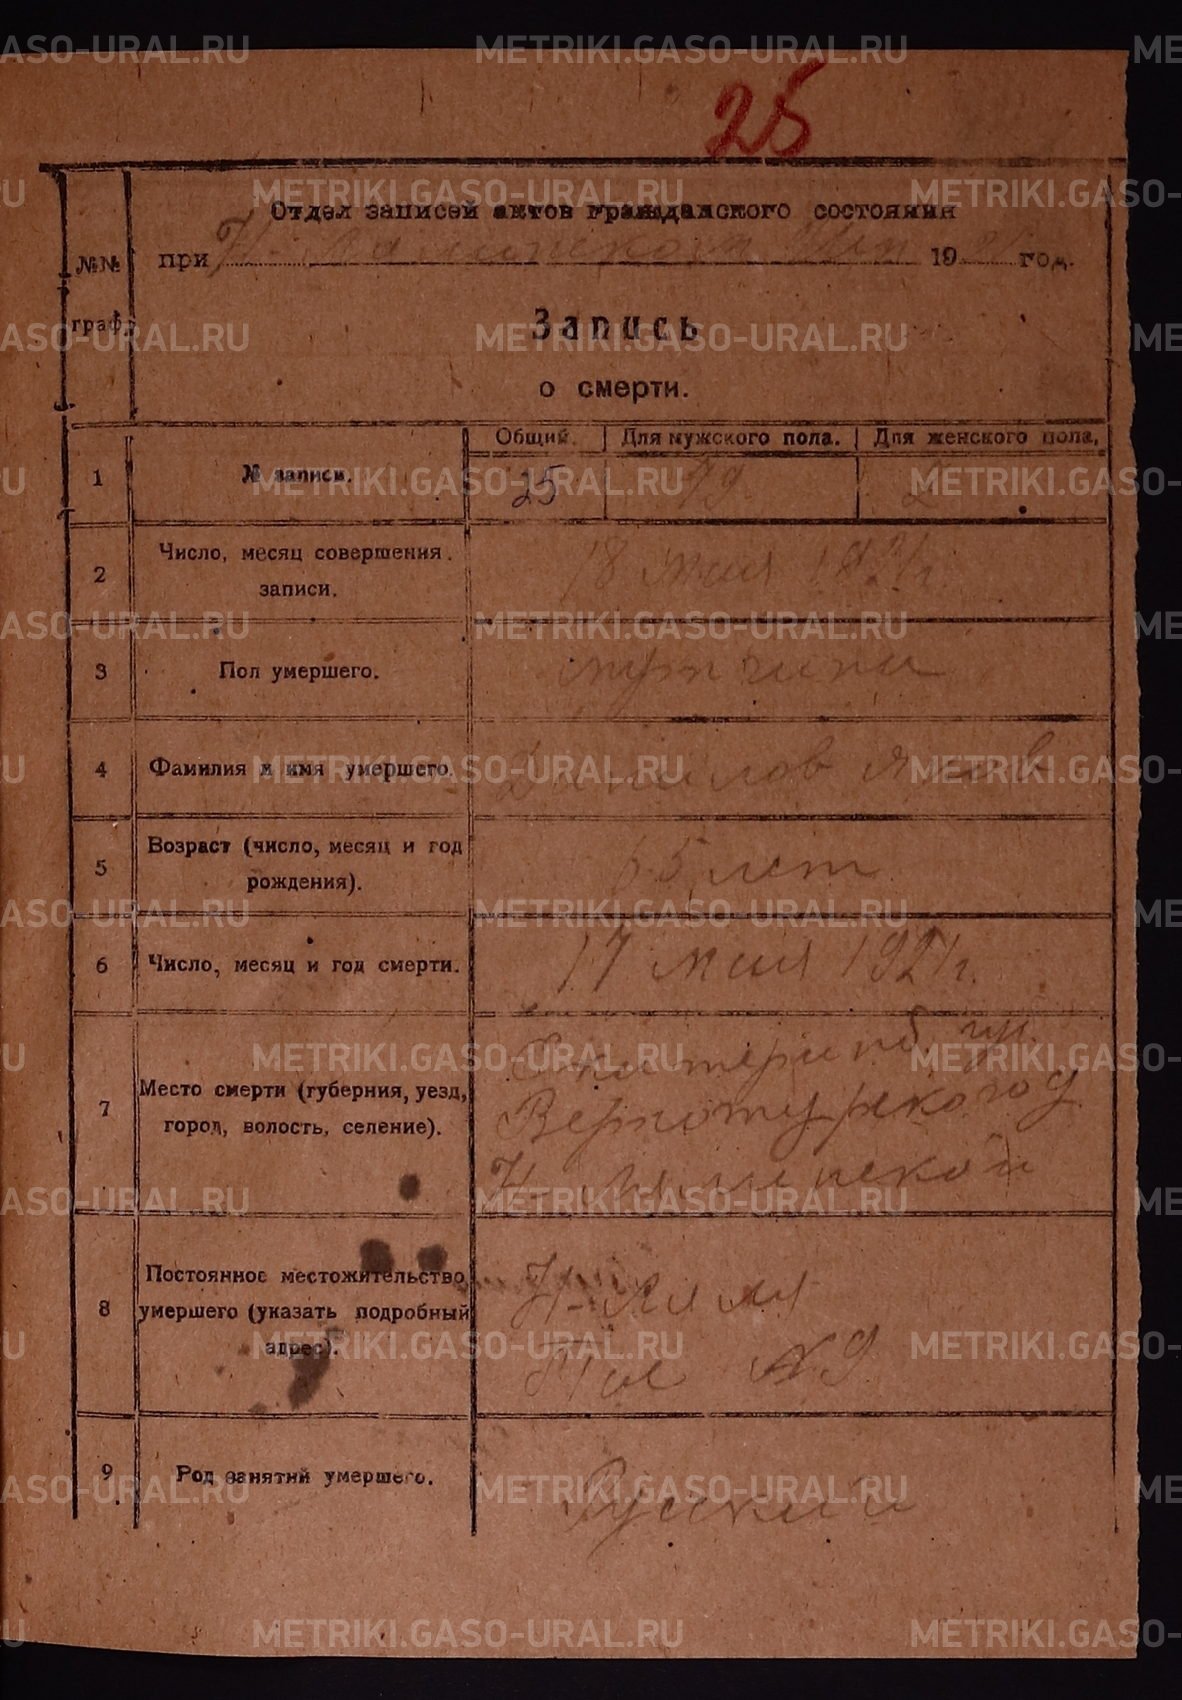 25
Отдел записей актов гражданского состояния
№№ граф.
при Н- 1921 год.
Запись
о смерти.
Общий. Для мужского пола. Для женского пола.
1 № записи. 25
2 Число, месяц совершения записи. 18 мая 1921 г.
3 Пол умершего. мужчина
4 Фамилия и имя умершего. Данилов Яков
5 Возраст (число, месяц и год рождения). 65 лет
6 Число, месяц и год смерти. 17 мая 1921 г.
7 Место смерти (губерния, уезд, город, волость, селение). Екатеринб. гу.
Верхотурского у
Н-Лялинской
8 Постоянное местожительство умершего (указать подробный адрес). Н-Ляля
№9
9 Род занятий умершего.
METRIKI.GASO-URAL.RU